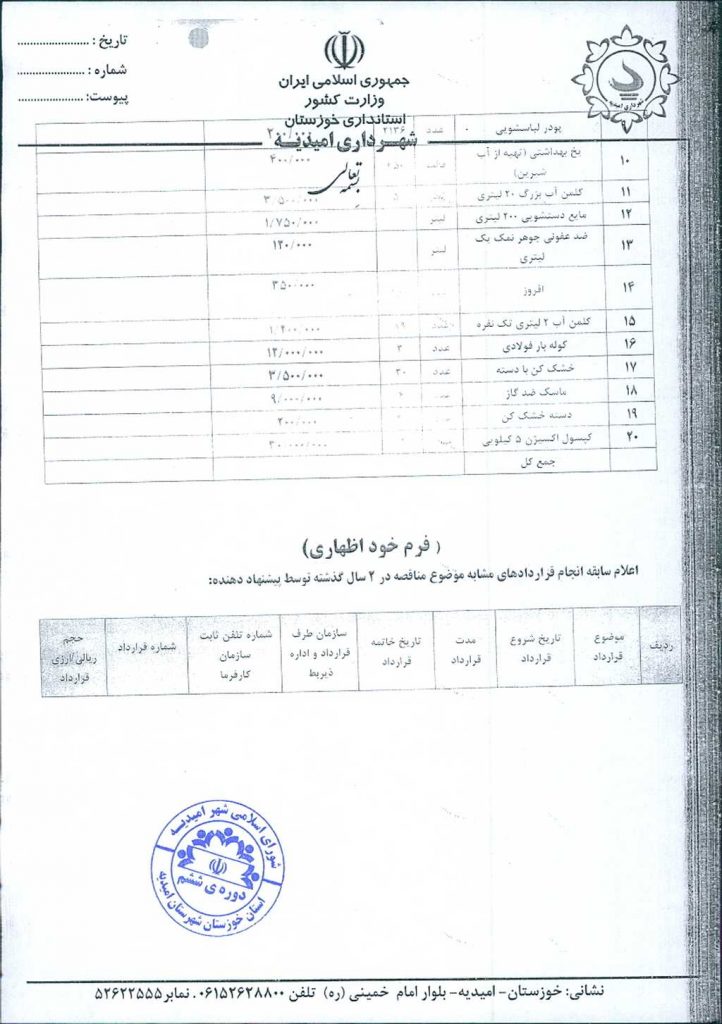 تاریخ : ......................
شماره : ......................
پیوست: ......................
جمهوری اسلامی ایران
وزارت کشور
استانداری خوزستان
شهرداری امیدیه
شهرداری امیدیه
بسمه تعالی
پودر لباسشویی عدد ۲۱۳۶
۱۰ یخ بهداشتی (تهیه از آب شیرین) ۴۰۰/۰۰۰
۱۱ کلمن آب بزرگ ۲۰ لیتری
۱۲ مایع دستشویی ۲۰۰ لیتری لیتر ۱/۷۵۰/۰۰۰
۱۳ ضد عفونی جوهر نمک یک لیتری لیتر ۱۲۰/۰۰۰
۱۴ افروز ۳۵۰/۰۰۰
۱۵ کلمن آب ۲ لیتری تک نفره عدد
۱۶ کوله بار فولادی عدد ۳ ۱۲/۰۰۰/۰۰۰
۱۷ خشک کن با دسته عدد ۳۰ ۳/۵۰۰/۰۰۰
۱۸ ماسک ضد گاز ۹/۰۰۰/۰۰۰
۱۹ دسته خشک کن ۲۰۰/۰۰۰
۲۰ کپسول اکسیژن ۵ کیلویی
جمع کل
( فرم خود اظهاری)
اعلام سابقه انجام قراردادهای مشابه موضوع مناقصه در ۲ سال گذشته توسط پیشنهاد دهنده:
ردیف
موضوع قرارداد
تاریخ شروع قرارداد
مدت قرارداد
تاریخ خاتمه قرارداد
سازمان طرف قرارداد و اداره ذیربط
شماره تلفن ثابت سازمان کارفرما
شماره قرارداد
حجم ریالی/ارزی قرارداد
شورای اسلامی شهر امیدیه
دوره ی ششم
استان خوزستان شهرستان امیدیه
نشانی: خوزستان- امیدیه- بلوار امام خمینی (ره) تلفن ۰۶۱۵۲۶۲۸۸۰۰ . نمابر ۵۲۶۲۲۵۵۵